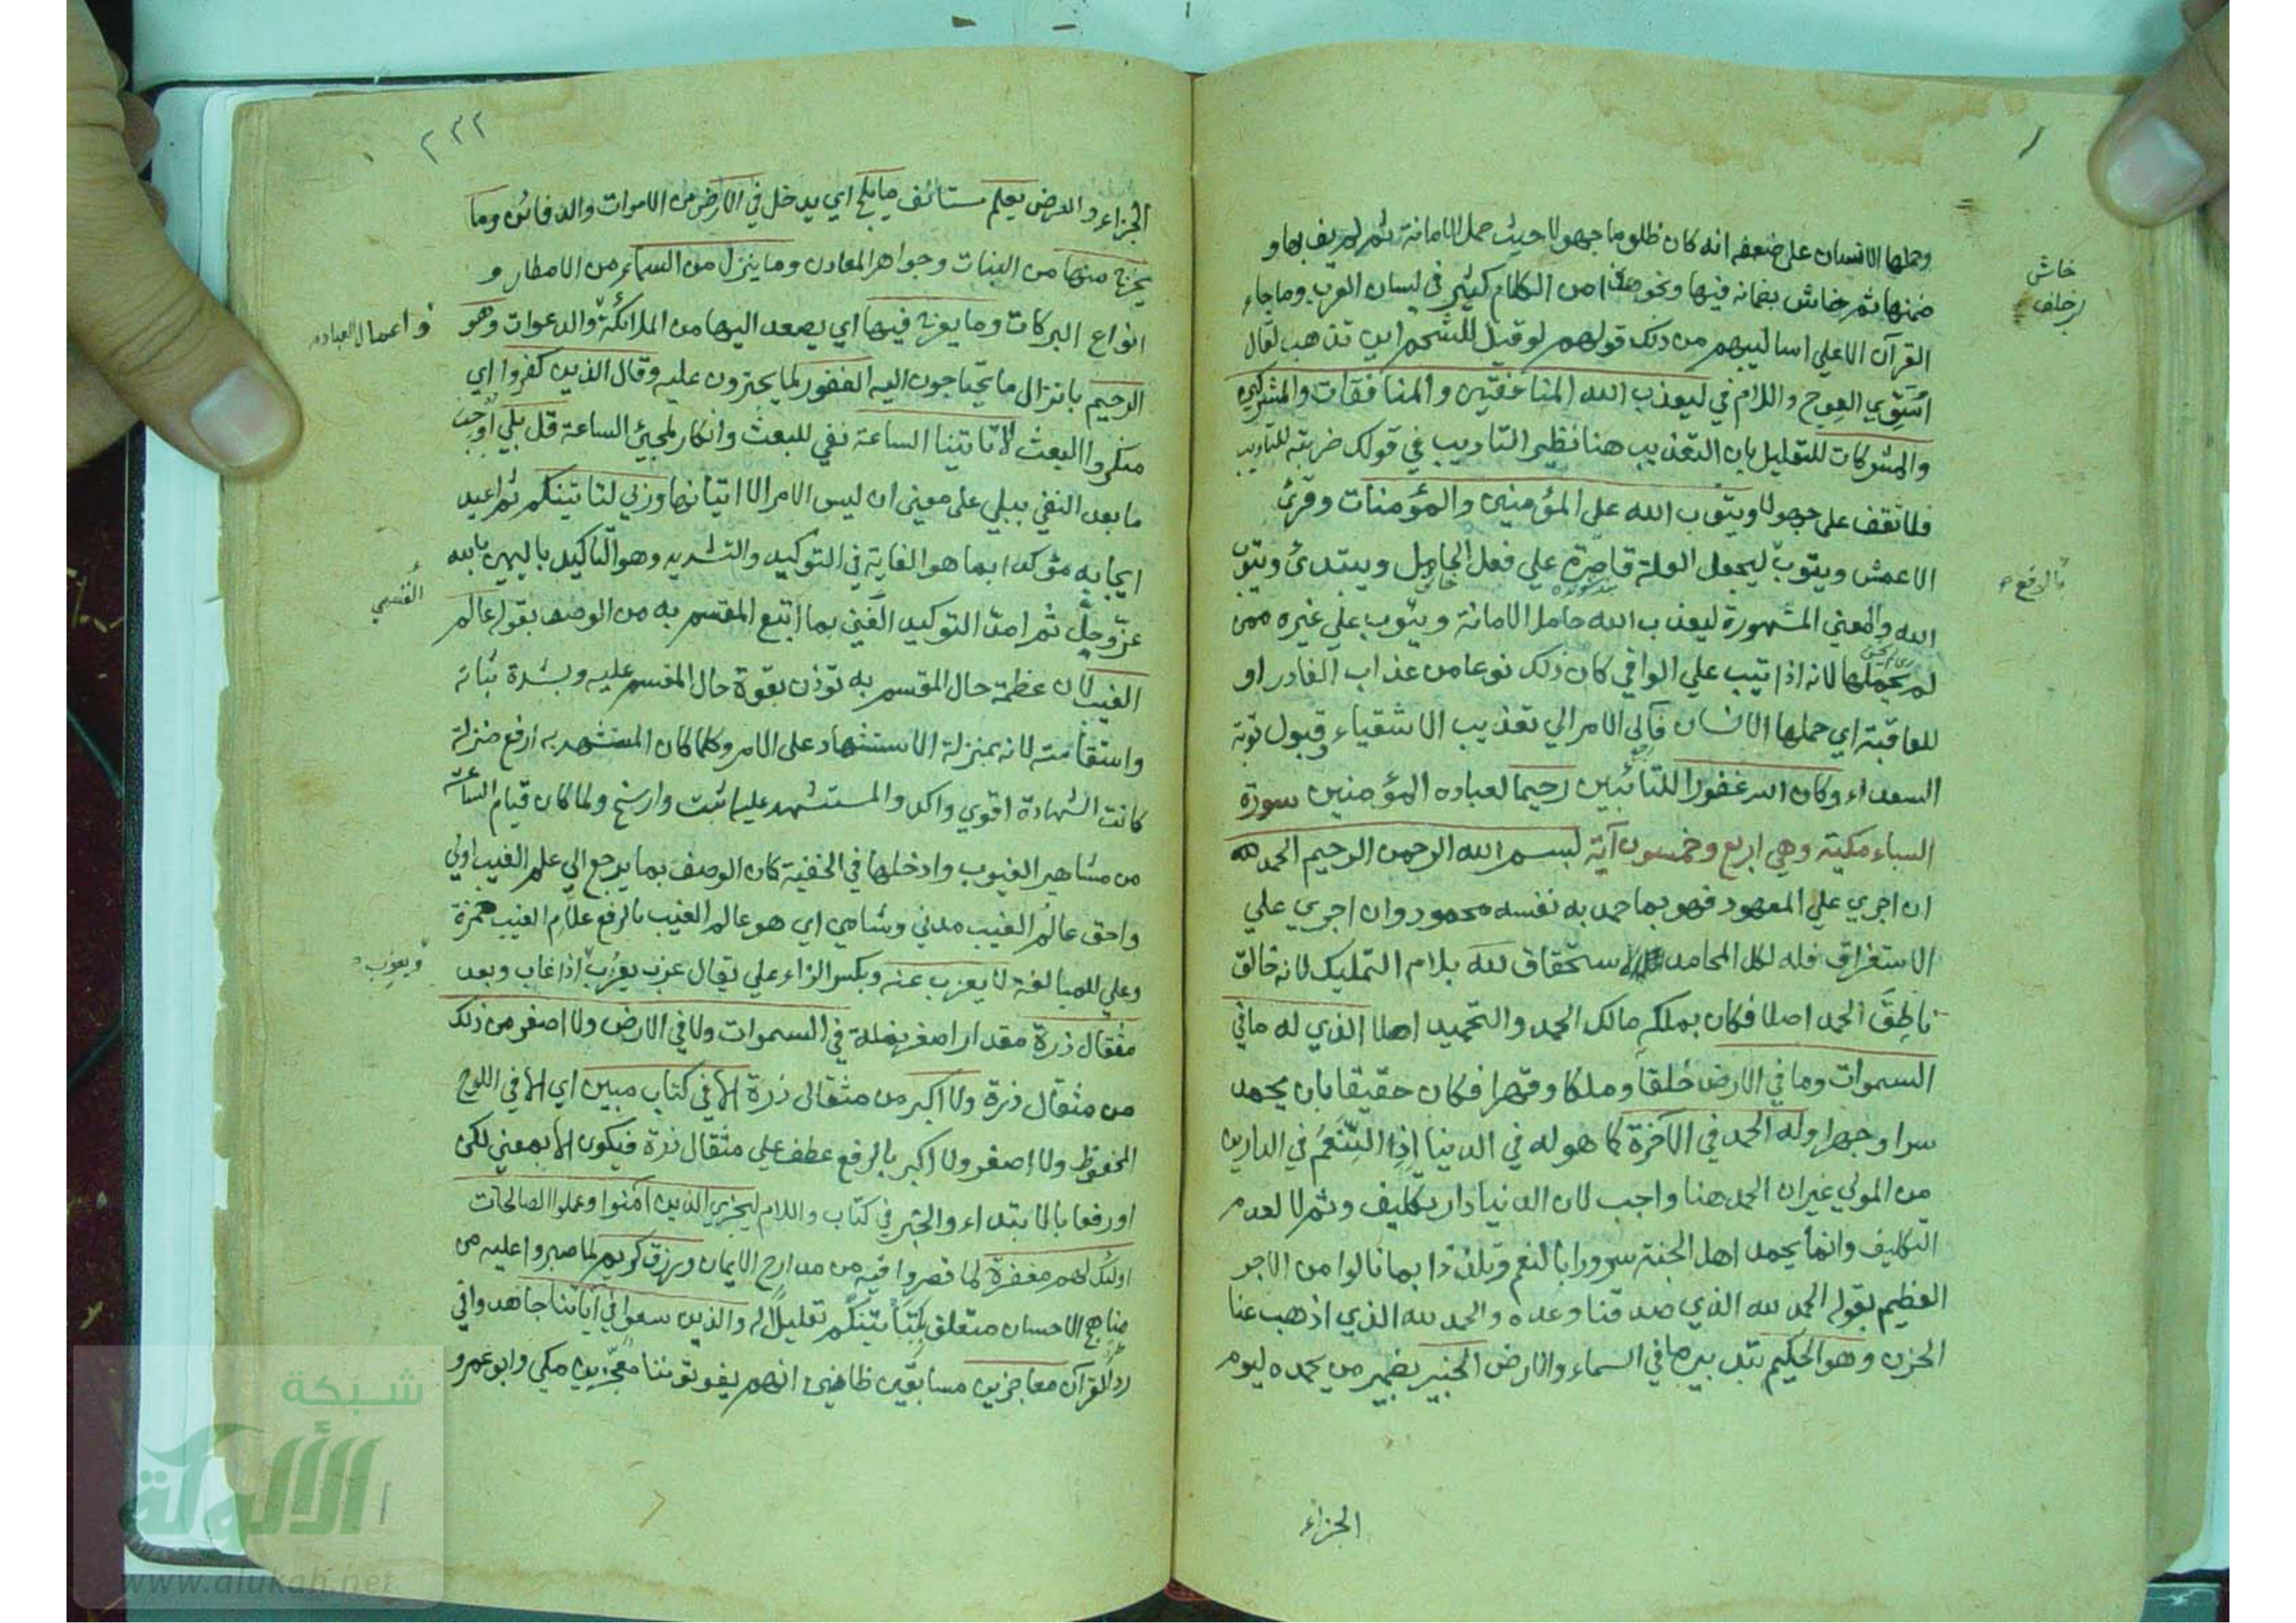 وحملها الانسان على ضعفه انه كان ظلوما جهولا حيث حمل الامانة ثم لم يف بها و
ضمنها ثم خاش بضمانه فيها ونحو هذا من الكلام كثير في لسان العرب وما جاء
القرآن الا علي اساليبهم من ذلك قولهم لو قيل للشحم اين تذهب لقال
اسوي العوج واللام في ليعذب الله المنافقين والمنافقات والمشركين
والمشركات للتعليل لان التعذيب هنا نظير التاديب في قولك ضربته للتاديب
فلا تقف على جهولا ويتوب الله على المؤمنين والمؤمنات وقرئ
الاعمش ويتوب ليجعل العلة قاصرة علي فعل الحامل ويبتدئ ويتوب
الله والمعني المشهورة ليعذب الله حامل الامانة ويتوب علي غيره ممن
لم يحملها لانه اذا تيب علي الوافي كان ذلك نوعا من عذاب الغادر او
للعاقبة اي حملها الانسان فآل الامر الي تعذيب الاشقياء وقبول توبة
السعداء وكان الله غفورا للتائبين رحيما لعباده المؤمنين سورة
السباء مكية وهي اربع وخمسون آية بسم الله الرحمن الرحيم الحمد لله
ان اجري علي المعهود فهو بما حمد به نفسه محمود وان اجري علي
الاستغراق فله لكل المحامد الاستحقاق لله بلام التمليك لانه خالق
ناطق الحمد اصلا فكان بملكه مالك الحمد والتحميد اهلا الذي له ما في
السموات وما في الارض خلقا وملكا وقهرا فكان حقيقا بان يحمد
سرا وجهرا وله الحمد في الآخرة كما هو له في الدنيا اذ النعم في الدارين
من المولي غير ان الحمد هنا واجب لان الدنيا دار تكليف وثم لا لعدم
التكليف وانما يحمد اهل الجنة سرورا بالنعم وتلذذا بما نالوا من الاجر
العظيم بقوله الحمد لله الذي صدقنا وعده والحمد لله الذي اذهب عنا
الحزن وهو الحكيم بتدبير ما في السماء والارض الخبير بضمير من يحمده ليوم
الجزاء
خاش
بالرفع
٢٣٢
الجزاء والعرض يعلم مستانف ما يلج اي يدخل في الارض من الاموات والدفائن وما
يخرج منها من النبات وجواهر المعادن وما ينزل من السماء من الامطار و
انواع البركات وما يعرج فيها اي يصعد اليها من الملائكة والدعوات وهو
الرحيم بانزال ما يحتاجون اليه الغفور لما يجترون عليه وقال الذين كفروا اي
منكروا البعث لا تاتينا الساعة نفي للبعث وانكار لمجيئ الساعة قل بلي اوجب
ما بعد النفي ببلي على معنى ان ليس الامر الا اتيانها وربي لتاتينكم ثم اعيد
ايجابه مؤكدا بما هو الغاية في التوكيد والتشديد وهو التاكيد باليمين بالله
عز وجل ثم امد التوكيد القسمي بما اتبع المقسم به من الوصف بقوله عالم
الغيب لان عظمة حال المقسم به توذن بقوة حال المقسم عليه وبشدة ثباته
واستقامته لانه بمنزلة الاستشهاد على الامر وكلما كان المستشهد به ارفع منزلة
كانت الشهادة اقوي واكد والمستشهد عليه اثبت وارسخ ولما كان قيام الساعة
من مشاهير الغيوب وادخلها في الخفية كان الوصف بما يرجع الي علم الغيب اولى
واحق عالم الغيب مدني وشامي اي هو عالم الغيب بالرفع علام الغيب حمزة
وعلي للمبالغة لا يعزب عنه وبكسر الزاء علي يقال عزب يعزب اذا غاب وبعد
مثقال ذرة مقدار اصغر نملة في السموات ولا في الارض ولا اصغر من ذلك
من مثقال ذرة ولا اكبر من مثقال ذرة الا في كتاب مبين اي الا في اللوح
المحفوظ ولا اصغر ولا اكبر بالرفع عطف علي مثقال ذرة فيكون الا بمعني لكن
او رفعا بالابتداء والخبر في كتاب واللام ليجزي الذين آمنوا وعملوا الصالحات
اولئك لهم مغفرة لما قصروا فيه من مدارج الايمان ورزق كريم لما صبروا عليه من
مناهج الاحسان متعلق بلتأتينكم تعليلا له والذين سعوا في آياتنا جاهدوا في
رد القرآن معاجزين مسابقين ظانين انهم يفوتوننا معجزين مكي وابو عمرو
واعمال العباد
القسمي
ويعزب
شبكة
الألوكة
www.alukah.net